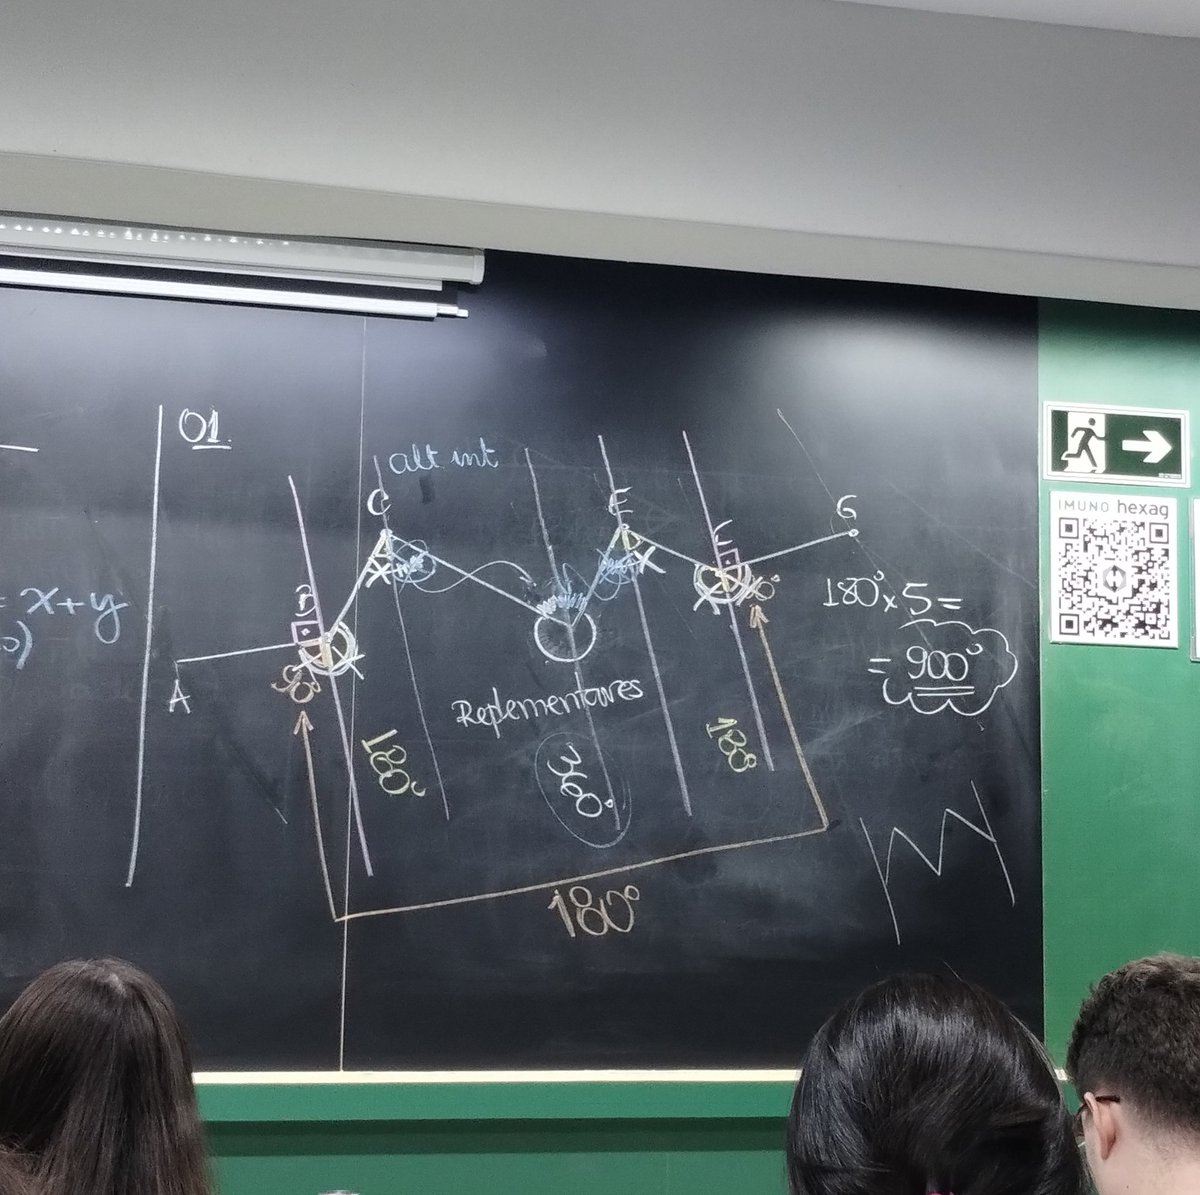 01.
= x+y
alt int
C
E
G
B
A
90°
90°
180° x 5 =
= 900°
Replementares
180°
360°
180°
IMUNO hexag